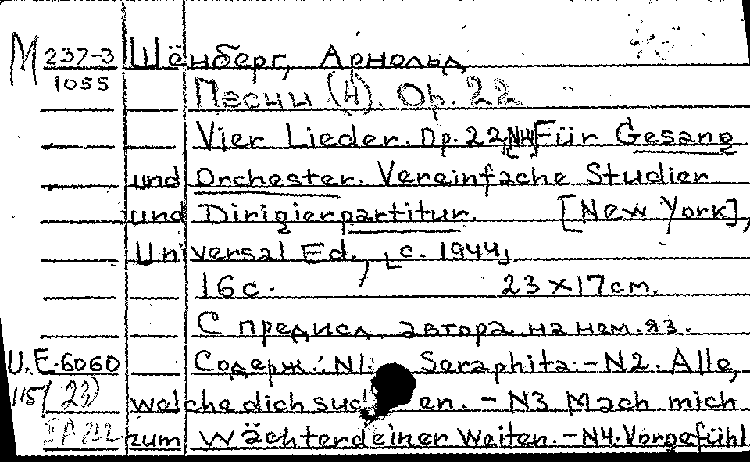 М 237-3 Шёнберг, Арнольд
1055 Песни (4). Op. 22
Vier Lieder. Op. 22 Für Gesang
und Orchester. Vereinfache Studier
und Dirigierpartitur. [New York],
Universal Ed., [c. 1944]
16 с. 23 x 17 cm.
С предисл. автора на нем. яз.
U.E. 6060 Содерж.: N1. Seraphita. - N2. Alle,
115(23) welche dich suchen. - N3 Mach mich
zum Wächter deiner Weiten. - N4. Vorgefühl